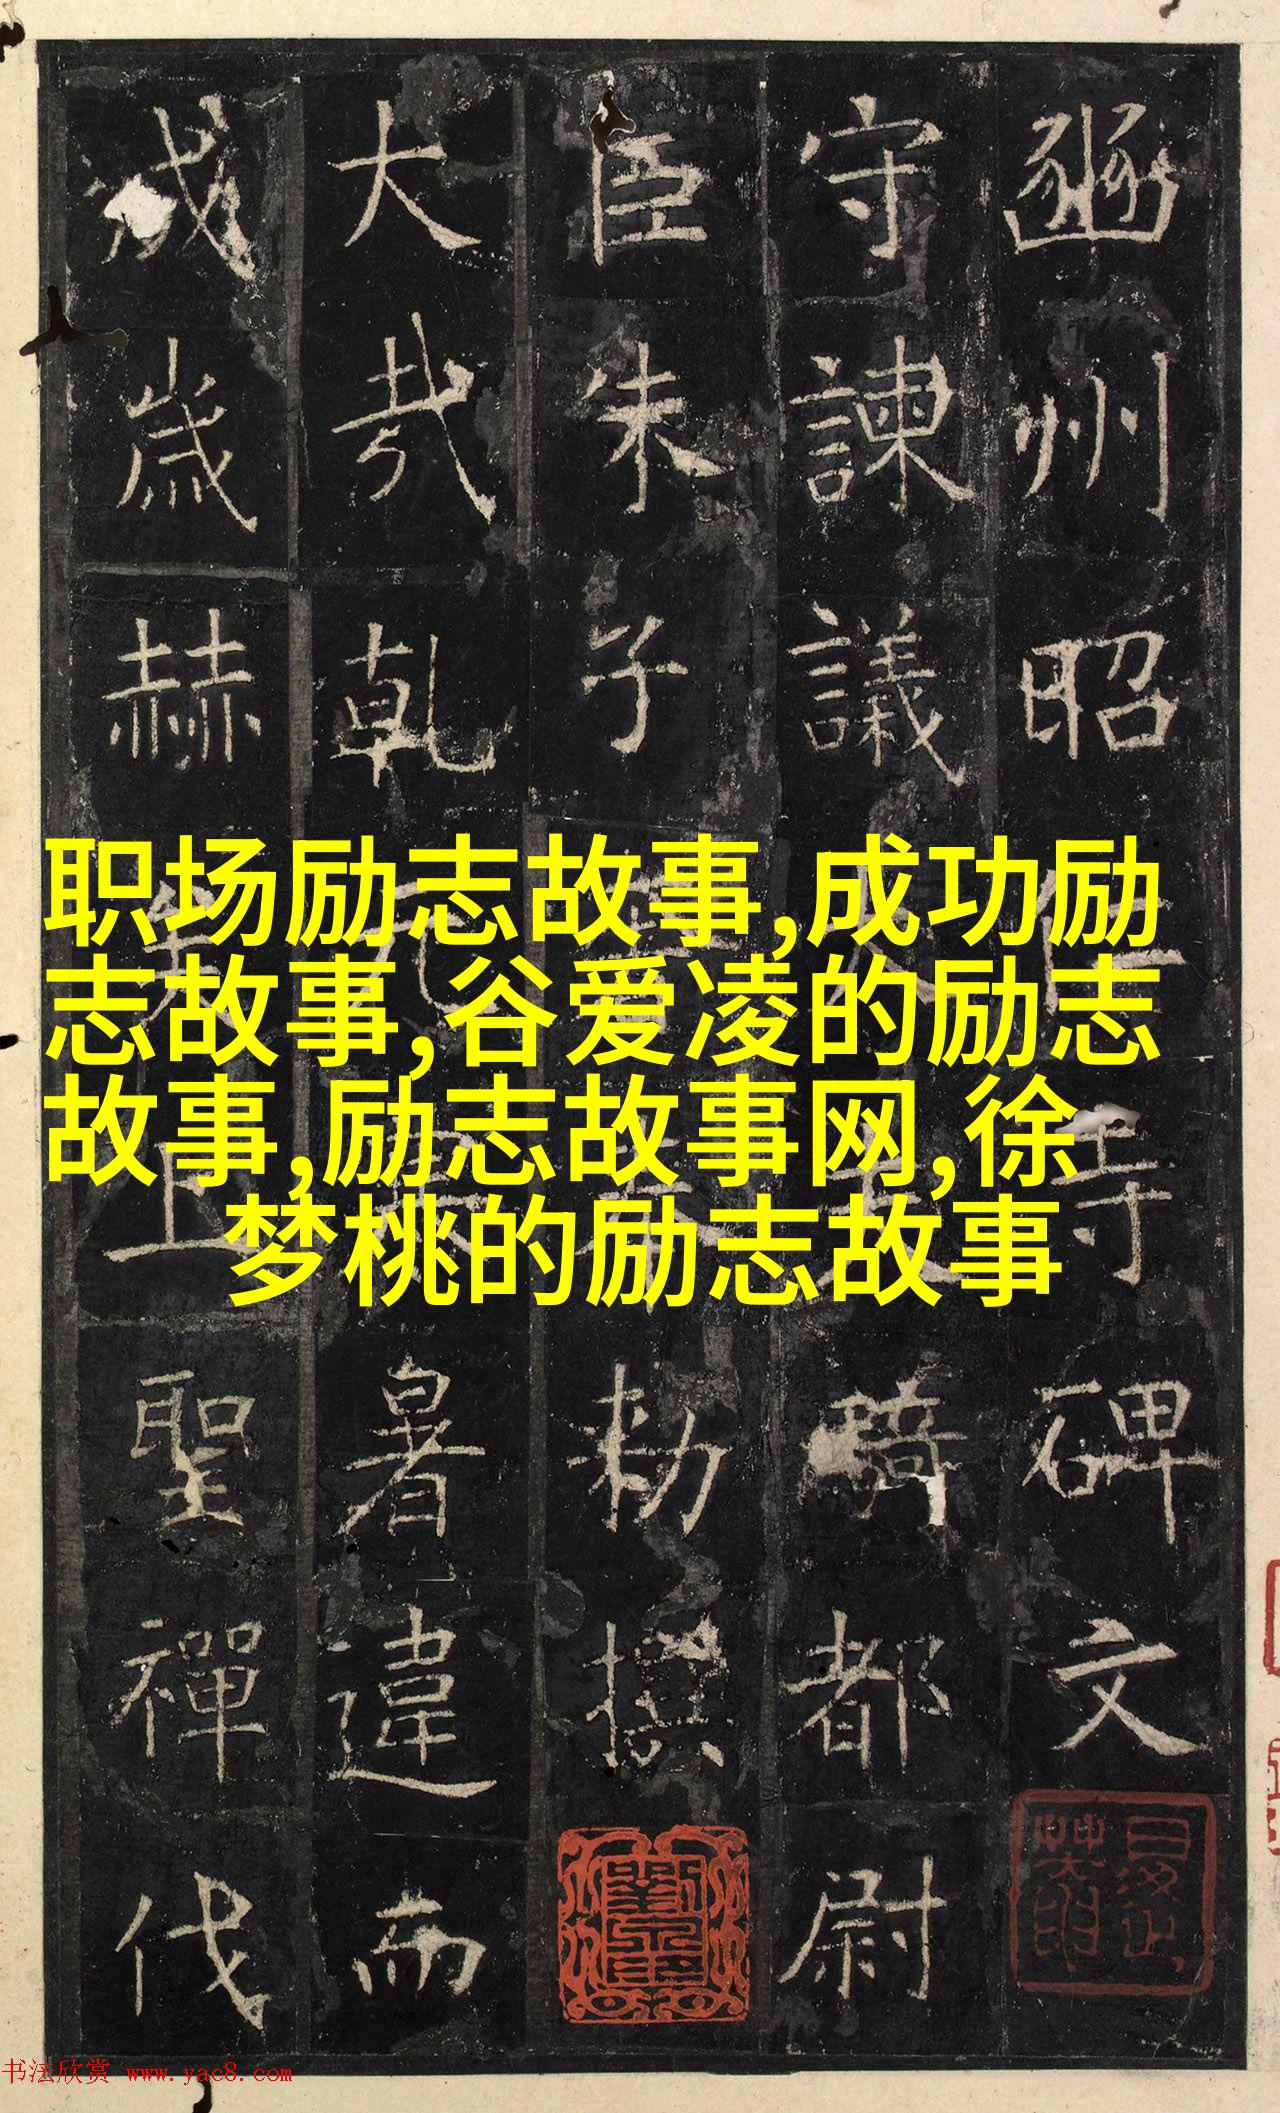 豳州昭寺碑文
守諫議騎都尉
臣朱子勑撰
大哉乾元暑違而
成歲赫上聖禪代
职场励志故事,成功励
志故事,谷爱凌的励志
故事,励志故事网,徐
梦桃的励志故事
书法欣赏 www.yac8.com